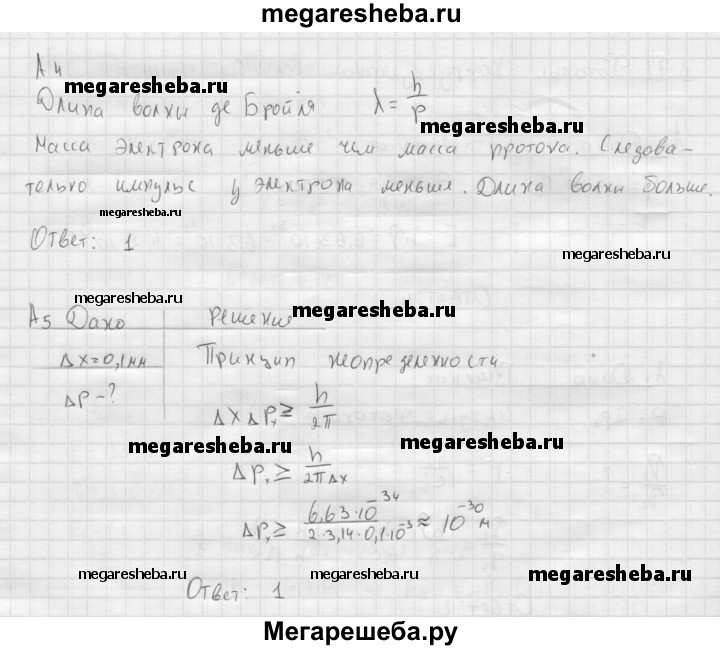 megaresheba.ru
А4
megaresheba.ru
Длина волны де Бройля λ = h/p
megaresheba.ru
Масса электрона меньше чем масса протона. Следова-
тельно импульс у электрона меньше. Длина волны больше.
megaresheba.ru
Ответ: 1
megaresheba.ru
megaresheba.ru
megaresheba.ru
А5 Дано Решение
Δx=0,1мм Принцип неопределенности
Δp-?
Δx Δpₓ ≥ h/2π
megaresheba.ru
megaresheba.ru
Δpₓ ≥ h/2πΔx
Δpₓ ≥ 6,63·10⁻³⁴/2·3,14·0,1·10⁻³ ≈ 10⁻³⁰ м
megaresheba.ru
megaresheba.ru
megaresheba.ru
Ответ: 1
Мегарешеба.ру